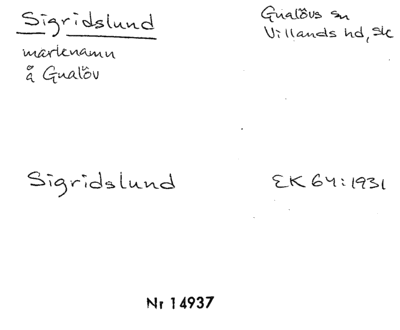 Sigridslund
Gualövs sn
Villands hd, Sk
marknamn
å Gualöv
Sigridslund
EK 64:1931
Nr 14937